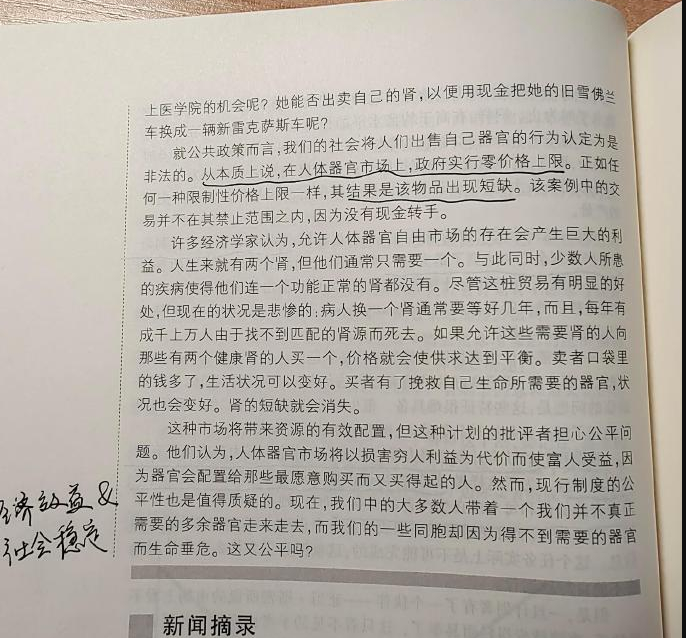 上医学院的机会呢？她能否出卖自己的肾，以便用现金把她的旧雪佛兰
车换成一辆新雷克萨斯车呢？
就公共政策而言，我们的社会将人们出售自己器官的行为认定为是
非法的。从本质上说，在人体器官市场上，政府实行零价格上限。正如任
何一种限制性价格上限一样，其结果是该物品出现短缺。该案例中的交
易并不在其禁止范围之内，因为没有现金转手。
许多经济学家认为，允许人体器官自由市场的存在会产生巨大的利
益。人生来就有两个肾，但他们通常只需要一个。与此同时，少数人所患
的疾病使得他们连一个功能正常的肾都没有。尽管这桩贸易有明显的好
处，但现在的状况是悲惨的：病人换一个肾通常要等好几年，而且，每年有
成千上万人由于找不到匹配的肾源而死去。如果允许这些需要肾的人向
那些有两个健康肾的人买一个，价格就会使供求达到平衡。卖者口袋里
的钱多了，生活状况可以变好。买者有了挽救自己生命所需要的器官，状
况也会变好。肾的短缺就会消失。
这种市场将带来资源的有效配置，但这种计划的批评者担心公平问
题。他们认为，人体器官市场将以损害穷人利益为代价而使富人受益，因
为器官会配置给那些最愿意购买而又买得起的人。然而，现行制度的公
平性也是值得质疑的。现在，我们中的大多数人带着一个我们并不真正
需要的多余器官走来走去，而我们的一些同胞却因为得不到需要的器官
而生命垂危。这又公平吗？
经济效益&
社会稳定
新闻摘录